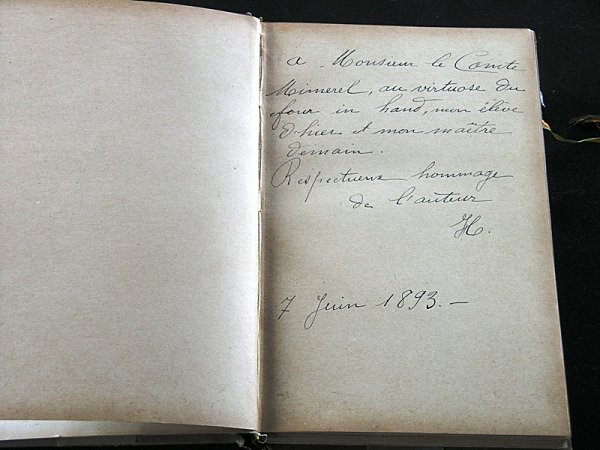 a Monsieur le Comte
Mimerel, au virtuose du
four in hand, mon élève
d'hier et mon maître
demain.
Respectueux hommage
de l'auteur
H.
7 Juin 1893. –